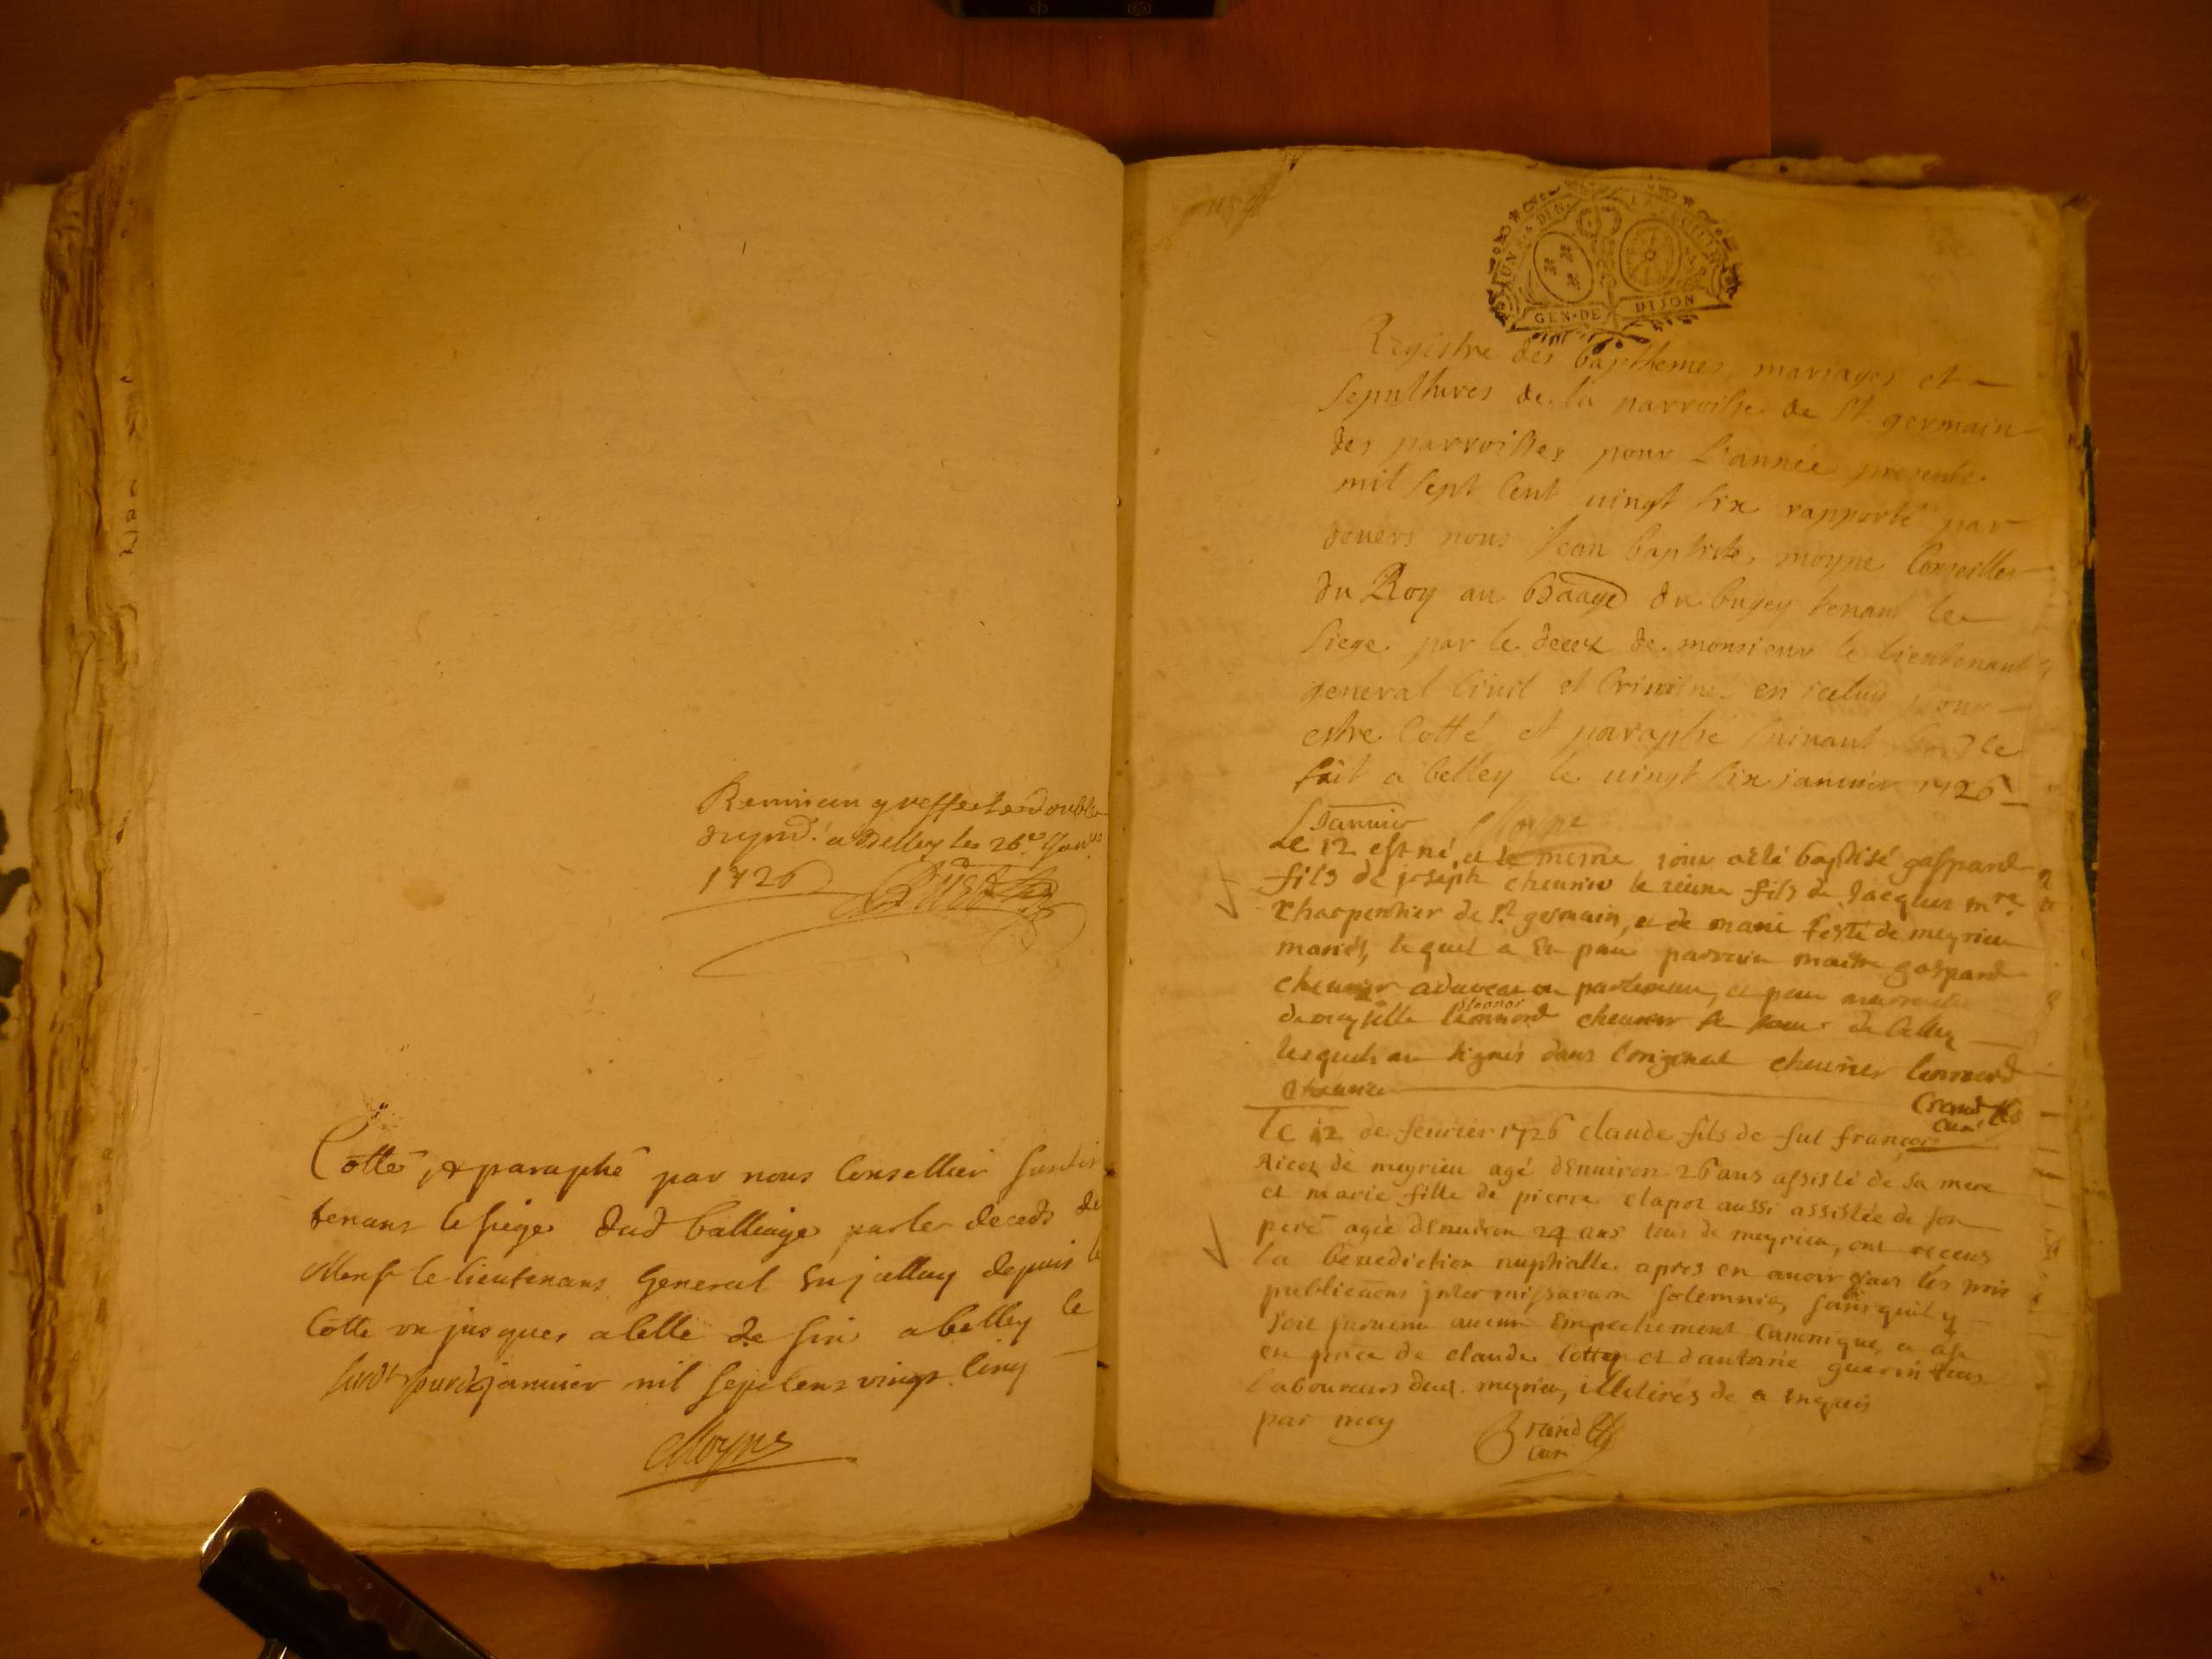 Remis au greffe le double
du pnt. a Belley le 26e Janv
1726
Cotté, & paraphé par nous Conseiller
tenans le siege dud balliage par le deceds de
Mons le lieutenans General en jcelluy depuis la
Cotte un jusques a celle de six a belley le
janvier mil sept cens vingt cinq
Moyne
DIN.
GEN·DE DIJON
Registre des bapthemes, mariages et
sepultures de la parroisse de St. germain
des parroisses pour L'année presente
mil sept Cent vingt six rapporté par
devers nous Jean baptiste moyne Conseiller
du Roy au Baage du bugey tenant le
siege par le decez de monsieur le lieutenant
general Civil et Criminel en iceluy pour
estre Cotté et paraphé suivant
fait a belley le vingt six janvier 1726
Janvier Moyne
Le 12 est né, et le meme jour a été baptisé gaspard
fils de joseph chevrier le jeune fils de Jacques mre
charpentier de St germain, et de marie feste de meyrieu
mariés, lequel a eu pour parrain maitre gaspard
chevrier advocat en parlement, et pour marraine
damoyselle Eleonor chevrier de belley
lesquels on signés dans l'original chevrier leonnord
chevrier
Crand
Curé
Le 12 de fevrier 1726 claude fils de fut françois
Ricoz de meyrieu agé d'Enuiron 26 ans assisté de sa mere
et marie fille de pierre clapot aussi assistée de son
pere agée d'Enuiron 24 ans tous de meyrieu, ont receus
la benediction nuptialle apres en avoir fais les trois
publicaons inter missarum solemnia, sans qu'il y
soit survenu aucun Empechement Canonique, a este
en pnce de claude Cottey et d'antoine guerin tous
laboureurs dud. meyrieu, illitirés de ce enquis
par moy
Crand
Curé